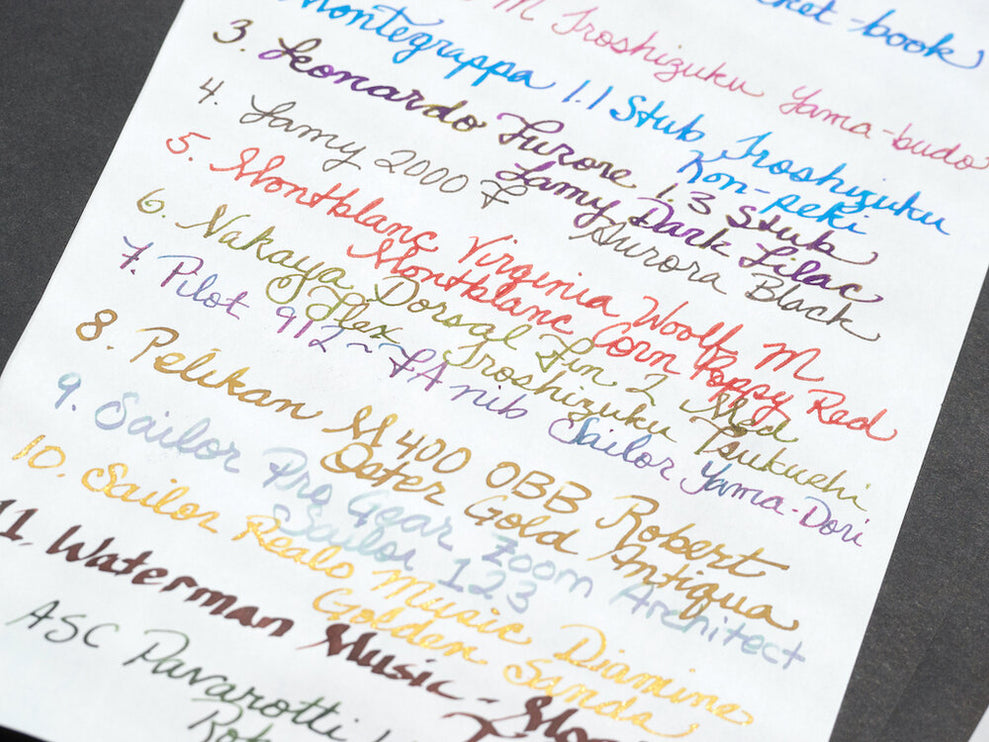 ket-book
M Iroshizuku Yama-budo
Montegrappa 1.1 Stub Iroshizuku
Kon-peki
3. Leonardo Furore 1.3 Stub
Lamy Dark Lilac
4. Lamy 2000 F Aurora Black
5. Montblanc Virginia Woolf M
Montblanc Corn Poppy Red
6. Nakaya Dorsal Fin 2 Med
Flex Iroshizuku Tsukushi
7. Pilot 912~FA nib Sailor Yama-Dori
8. Pelikan M400 OBB Robert
Oster Gold Antiqua
9. Sailor Pro Gear Zoom Architect
Sailor 123
10. Sailor Realo Music Diamine
Golden Sands
11. Waterman Music - Mon
ASC Pavarotti
Rob